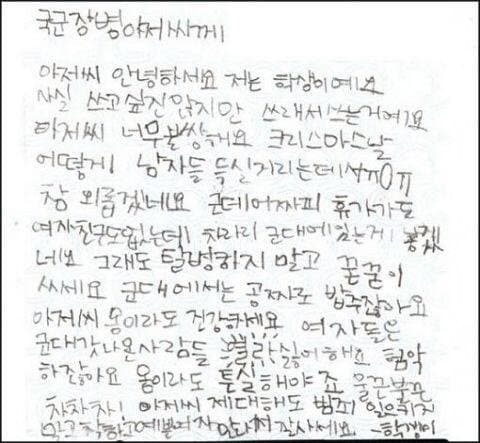 국군장병아저씨께
아저씨 안녕하세요 저는 학생이예요
사실 쓰고싶진 않지만 쓰래서쓰는거에요
아저씨 너무불쌍해요 크리스마스날
어떻게 남자들 득실거리는데서ㅠ0ㅠ
참 외롭겠네요 군데어짜피 휴가가도
여자친구도없는데 차라리 군대에있는게 좋겠
네요 그래도 탈병하지 말고 꾿꾿이
싸세요 군대에서는 공짜로 밥주잖아요
아저씨 몸이라도 건강하세요 여자들은
군대갓나온사람들 싫어해요 험악
하잖아요 몸이라도 튼실해야죠 울끈불끈
차차차! 아저씨 제대해도 범죄 일으키지
말고 착하고예쁜여자 만나서 잘사세요